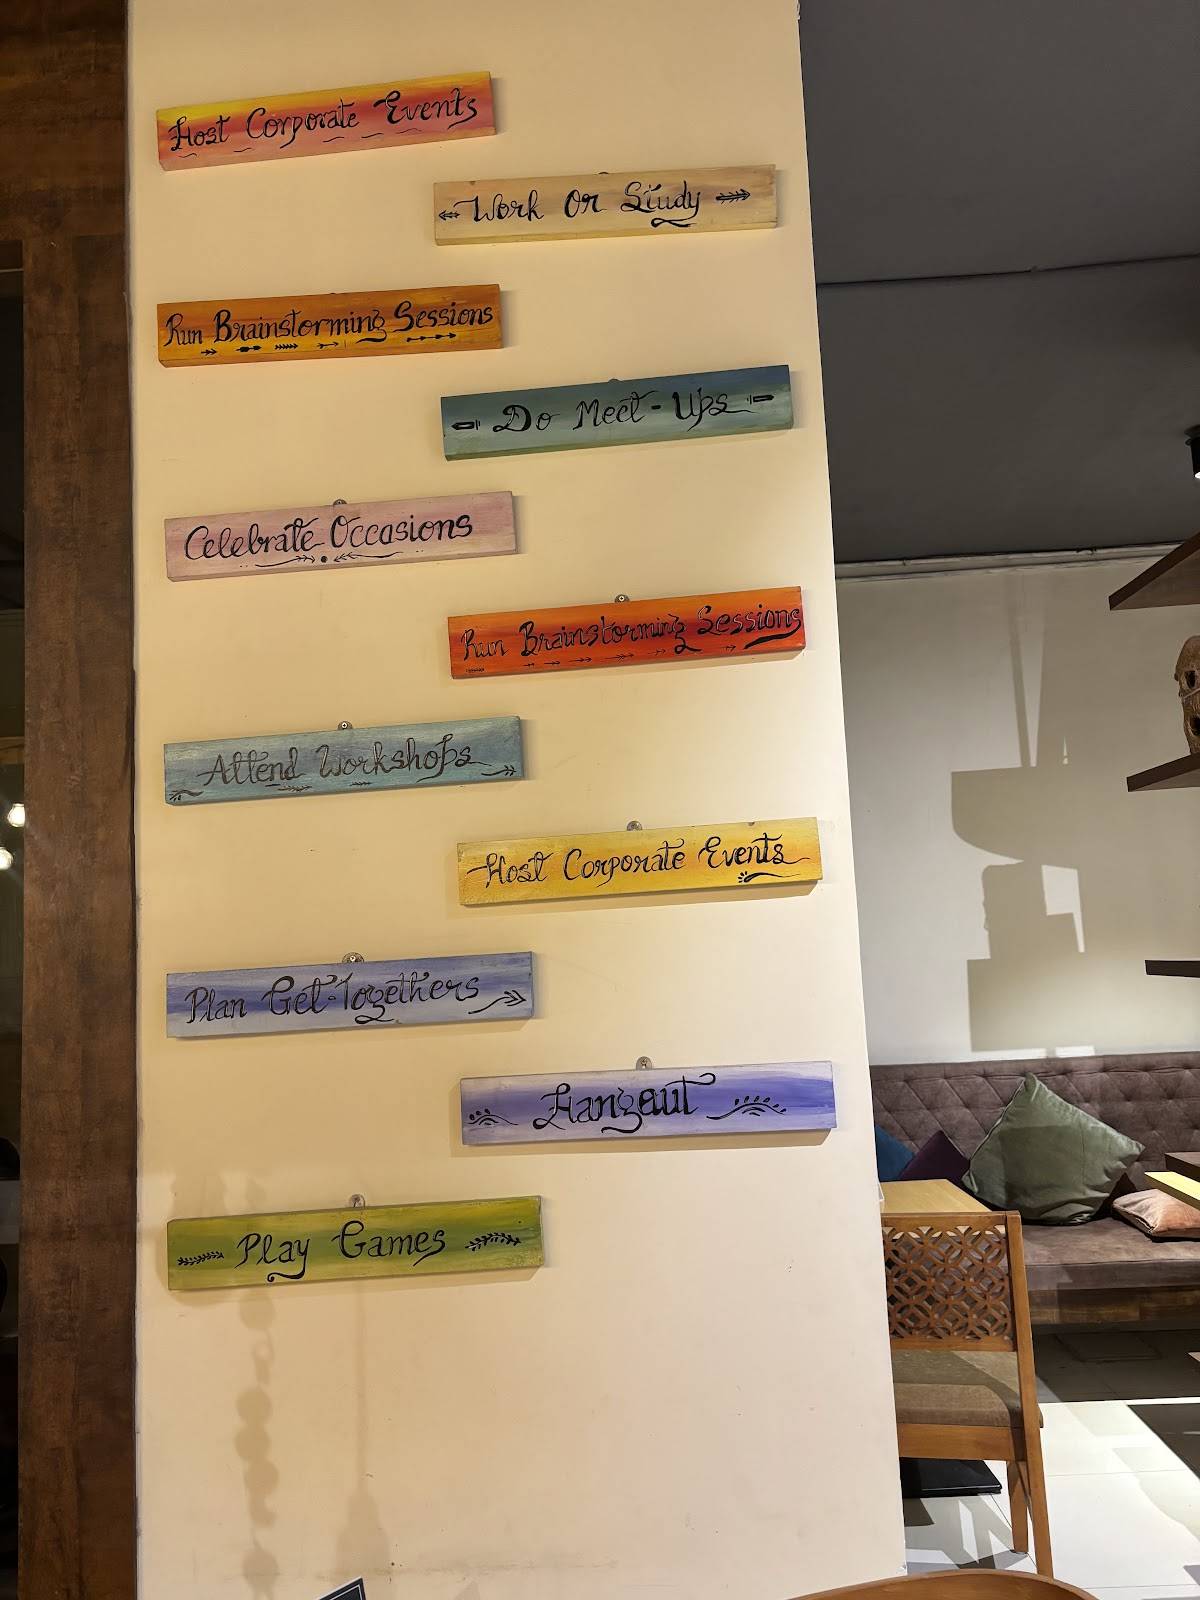 Host Corporate Events
Work Or Study
Run Brainstorming Sessions
Do Meet-Ups
Celebrate Occasions
Run Brainstorming Sessions
Attend Workshops
Host Corporate Events
Plan Get-Togethers
Hangout
Play Games